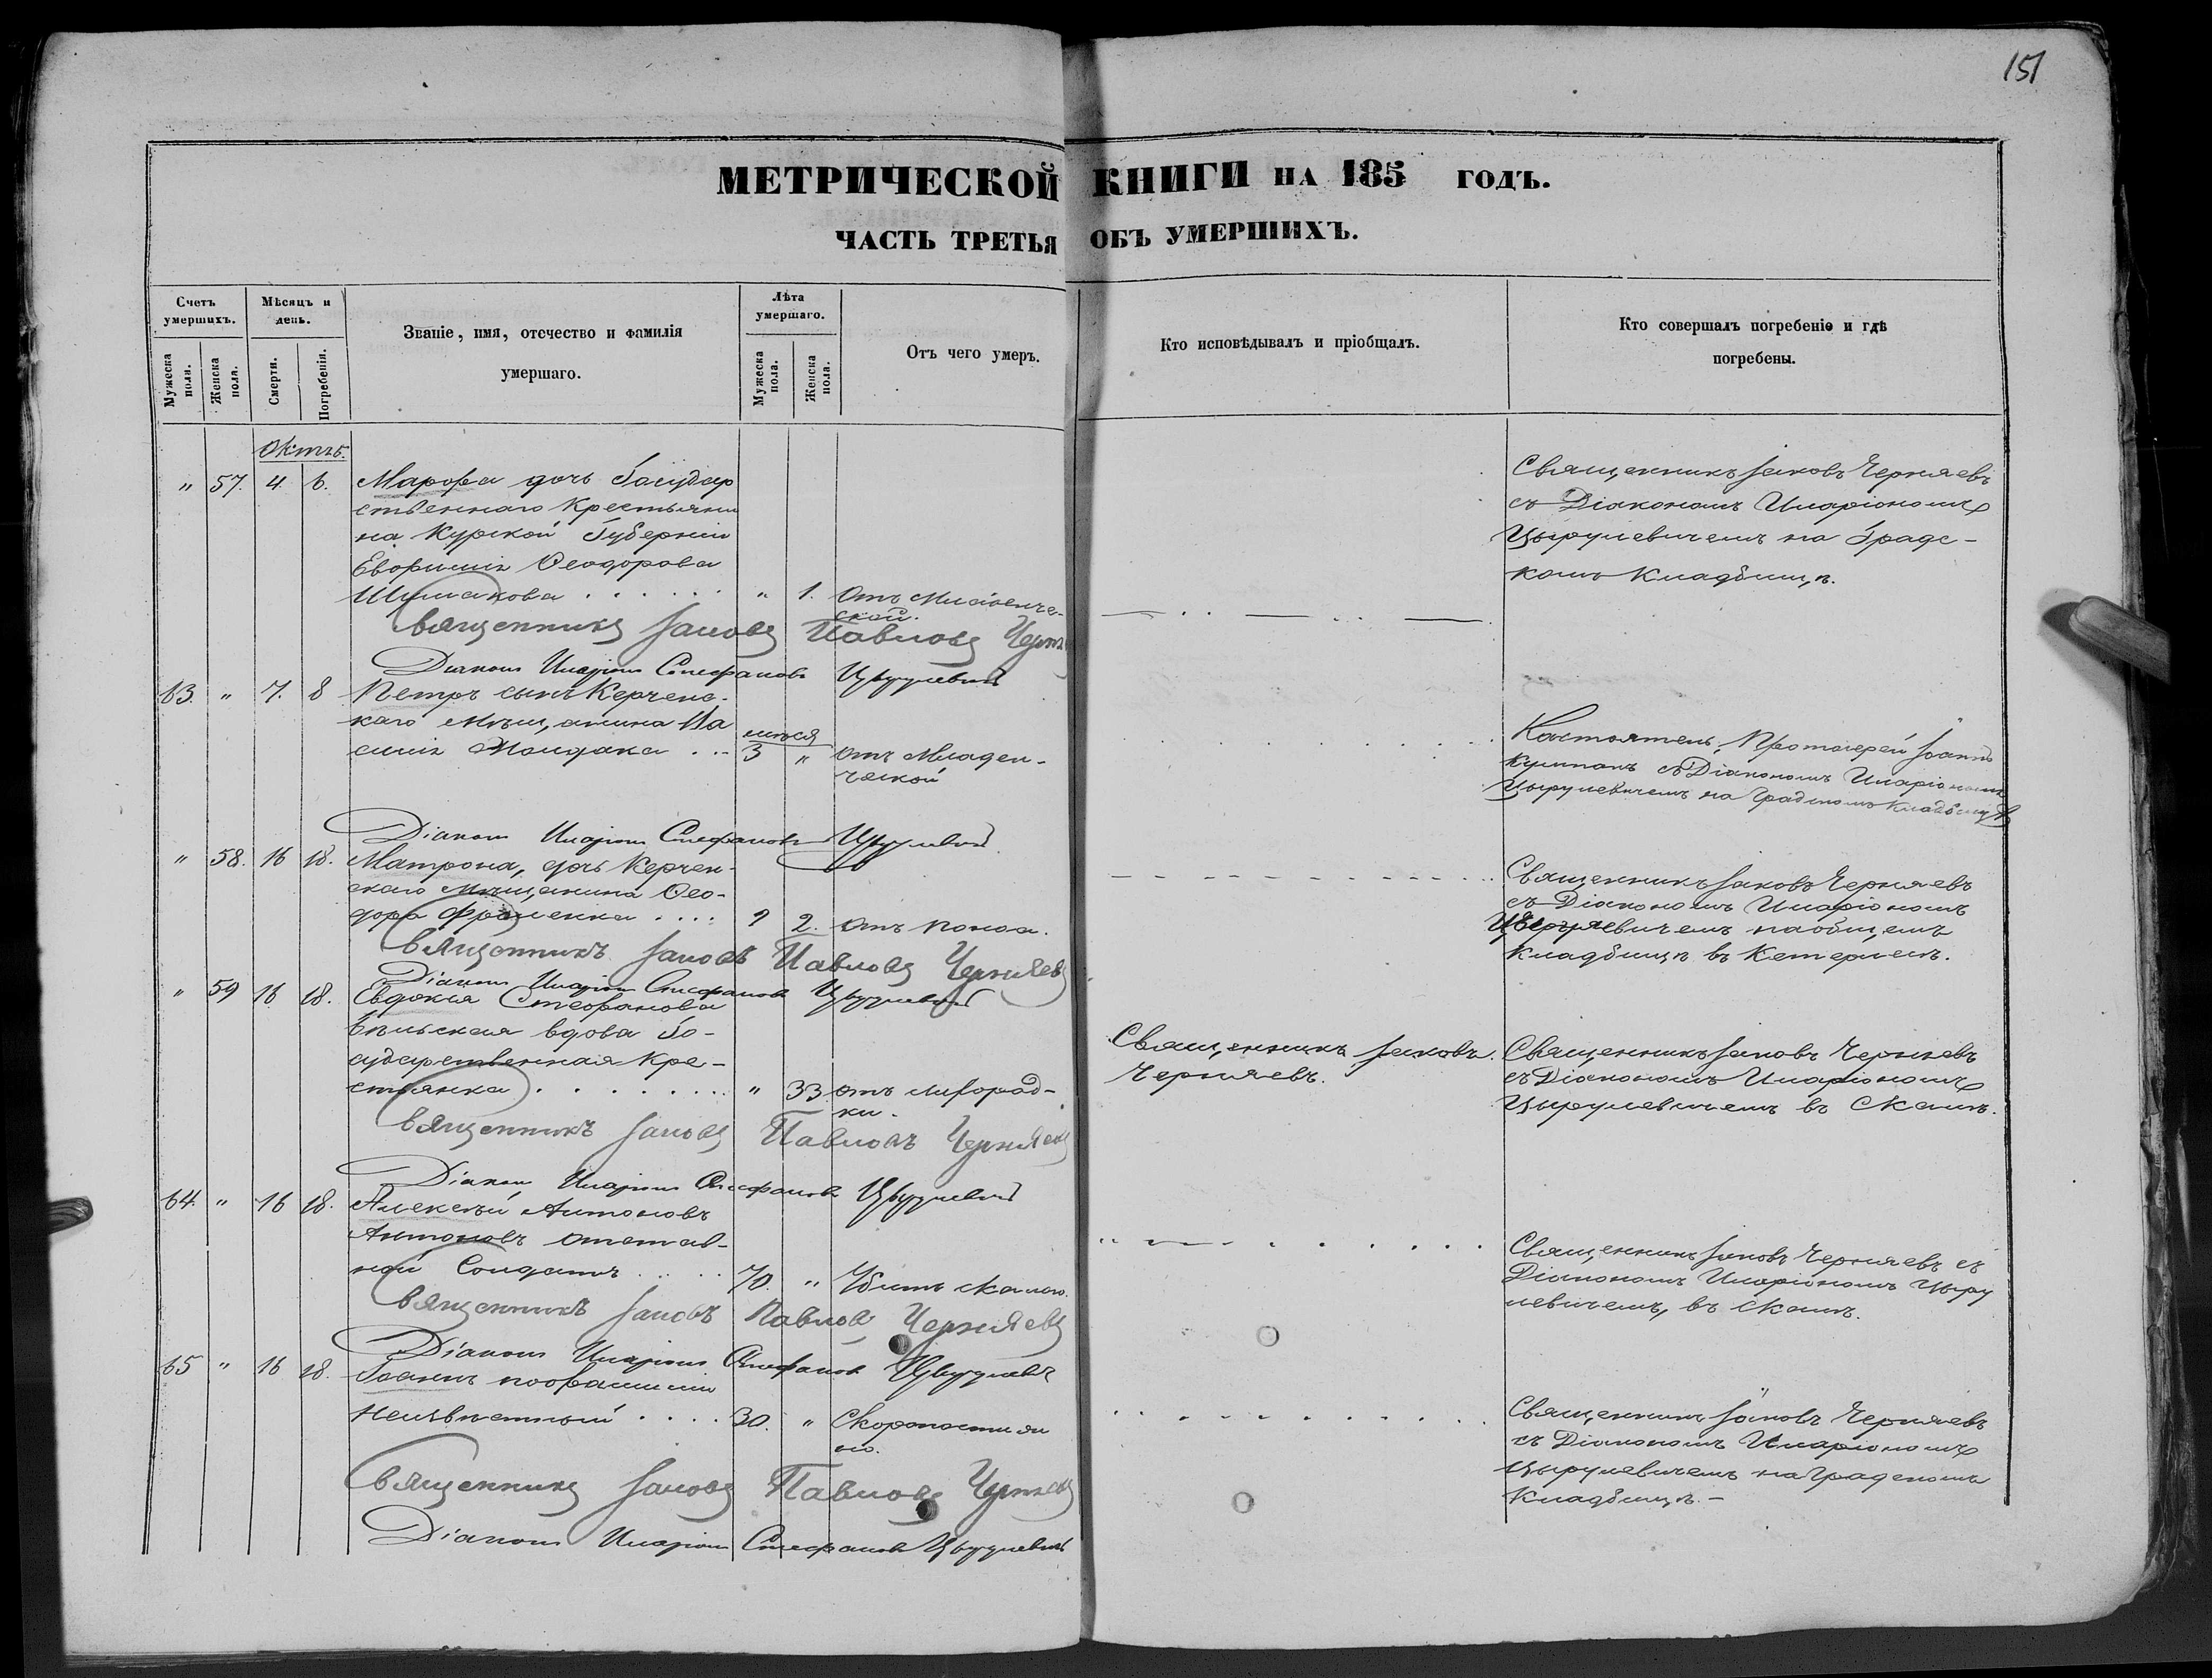 151
МЕТРИЧЕСКОЙ КНИГИ НА 185 ГОДЪ.
ЧАСТЬ ТРЕТЬЯ ОБЪ УМЕРШИХЪ.
Счетъ умершихъ.
Мѣсяцъ и день.
Званіе, имя, отечество и фамилія умершаго.
Лѣта умершаго.
Отъ чего умеръ.
Кто исповѣдывалъ и пріобщалъ.
Кто совершалъ погребеніе и гдѣ погребены.
Мужеска пола.
Женска пола.
Смерти.
Погребенія.
Мужеска пола.
Женска пола.
Октяб.
" 57. 4. 6. Марфа дочь Государ
ственнаго Крестьяни
на Курской Губерніи
Евфиміа Ѳеодорова
" 1. отъ Младенче-
ской.
Священникъ Іаковъ Черняевъ
съ Діакономъ Иларіономъ
Цырулевичемъ на Градс-
комъ Кладбищѣ.
Священникъ Іаковъ Павловъ
Діаконъ Иларіонъ Стефановъ Цырулевичъ
63. " 7. 8 Петръ сынъ Керченс-
каго Мѣщанина Ва
силія
мѣсяц
3 " отъ Младен-
ческой
Настоятель, Протоіерей Іоаннъ
съ Діакономъ Иларіономъ
Цырулевичемъ на Градскомъ Кладбищѣ
Діаконъ Иларіонъ Стефановъ Цырулевичъ
" 58. 16 18. Матрона, дочь Керчен-
скаго Мѣщанина Ѳео-
дора
2. отъ поноса.
Священникъ Іаковъ Черняевъ
съ Діакономъ Иларіономъ
Цырулевичемъ на общемъ
Кладбищѣ въ
Священникъ Іаковъ Павловъ Черняевъ
Діаконъ Иларіонъ Стефановъ Цырулевичъ
" 59 16 18. Евдокія Стефанова
Бѣльская вдова Го-
сударственная Кре-
стьянка
" 33. отъ лихорад-
ки.
Священникъ Іаковъ
Черняевъ.
Священникъ Іаковъ Черняевъ
съ Діакономъ Иларіономъ
Цырулевичемъ въ
Священникъ Іаковъ Павловъ Черняевъ
Діаконъ Иларіонъ Стефановъ Цырулевичъ
64. " 16 18. Алексѣй Антоновъ
Антоновъ отстав-
ной Солдатъ
70. " Убитъ скалою.
Священникъ Іаковъ Черняевъ съ
Діакономъ Иларіономъ Цыру
левичемъ, въ
Священникъ Іаковъ Павловъ Черняевъ
Діаконъ Иларіонъ Стефановъ Цырулевичъ
65 " 16 18. Іоаннъ по фамиліи
Неизвѣстный
30. " Скоропостиж
но.
Священникъ Іаковъ Черняевъ
съ Діакономъ Иларіономъ
Цырулевичемъ на Градскомъ
Кладбищѣ. -
Священникъ Іаковъ Павловъ Черняевъ
Діаконъ Иларіонъ Стефановъ Цырулевичъ